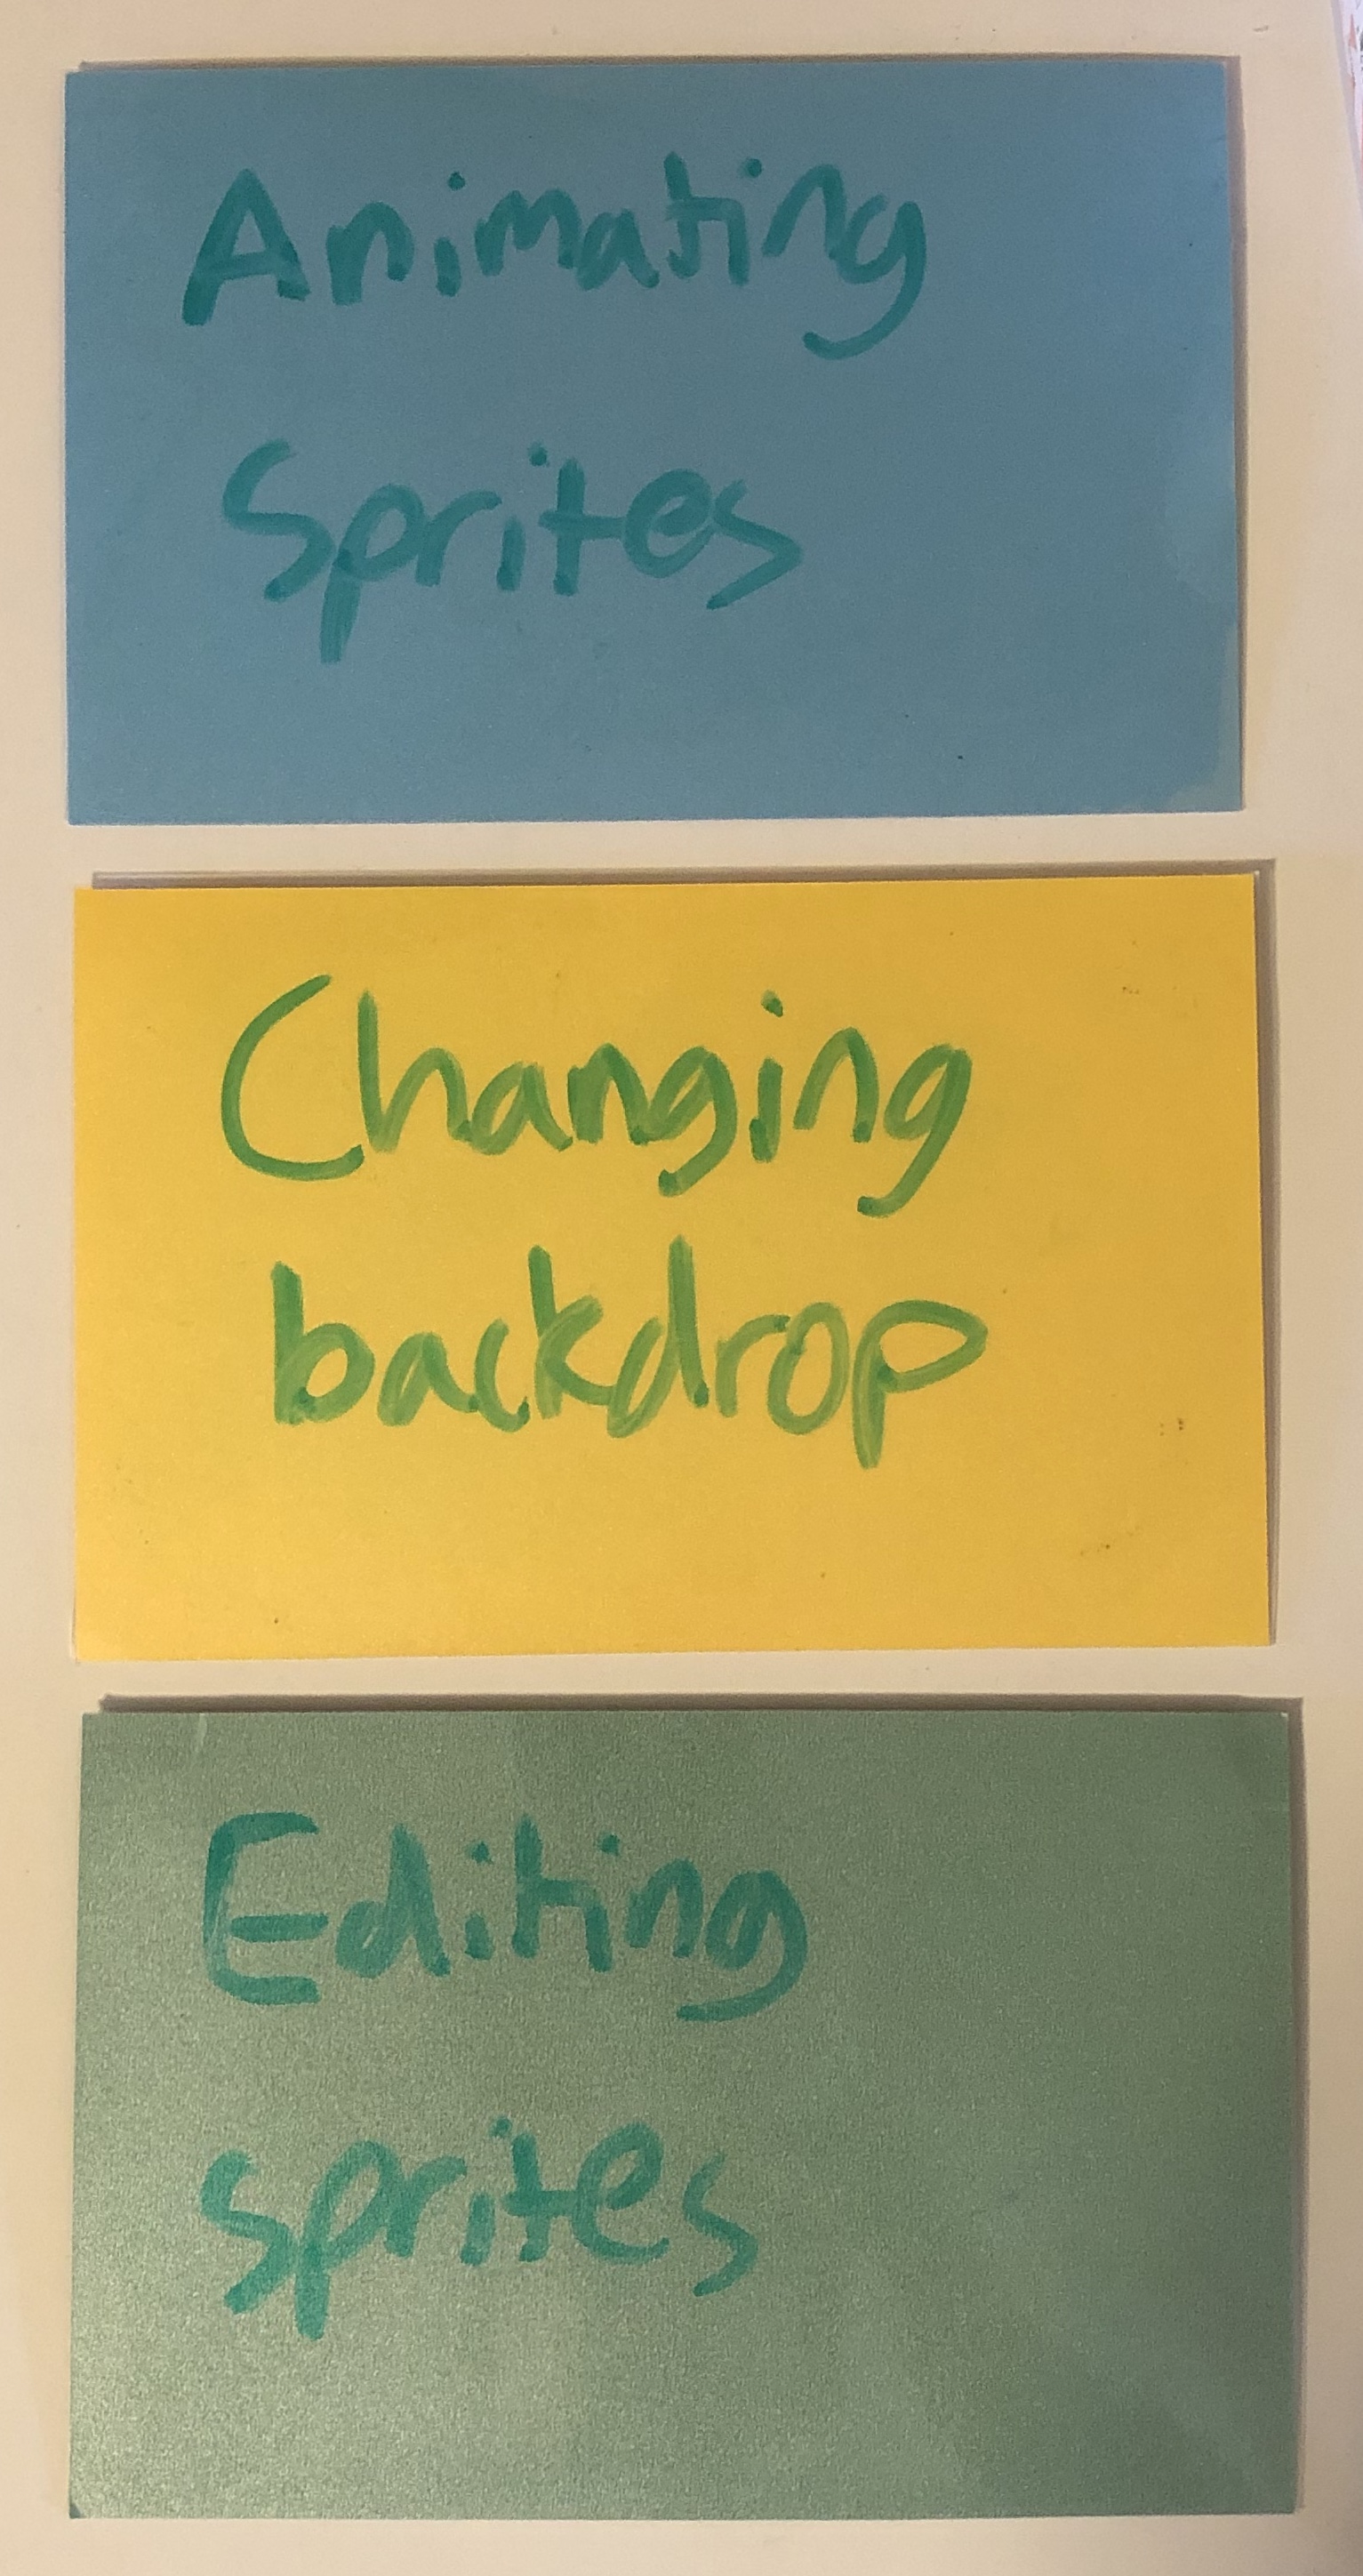 Animating
Sprites
Changing
backdrop
Editing
sprites